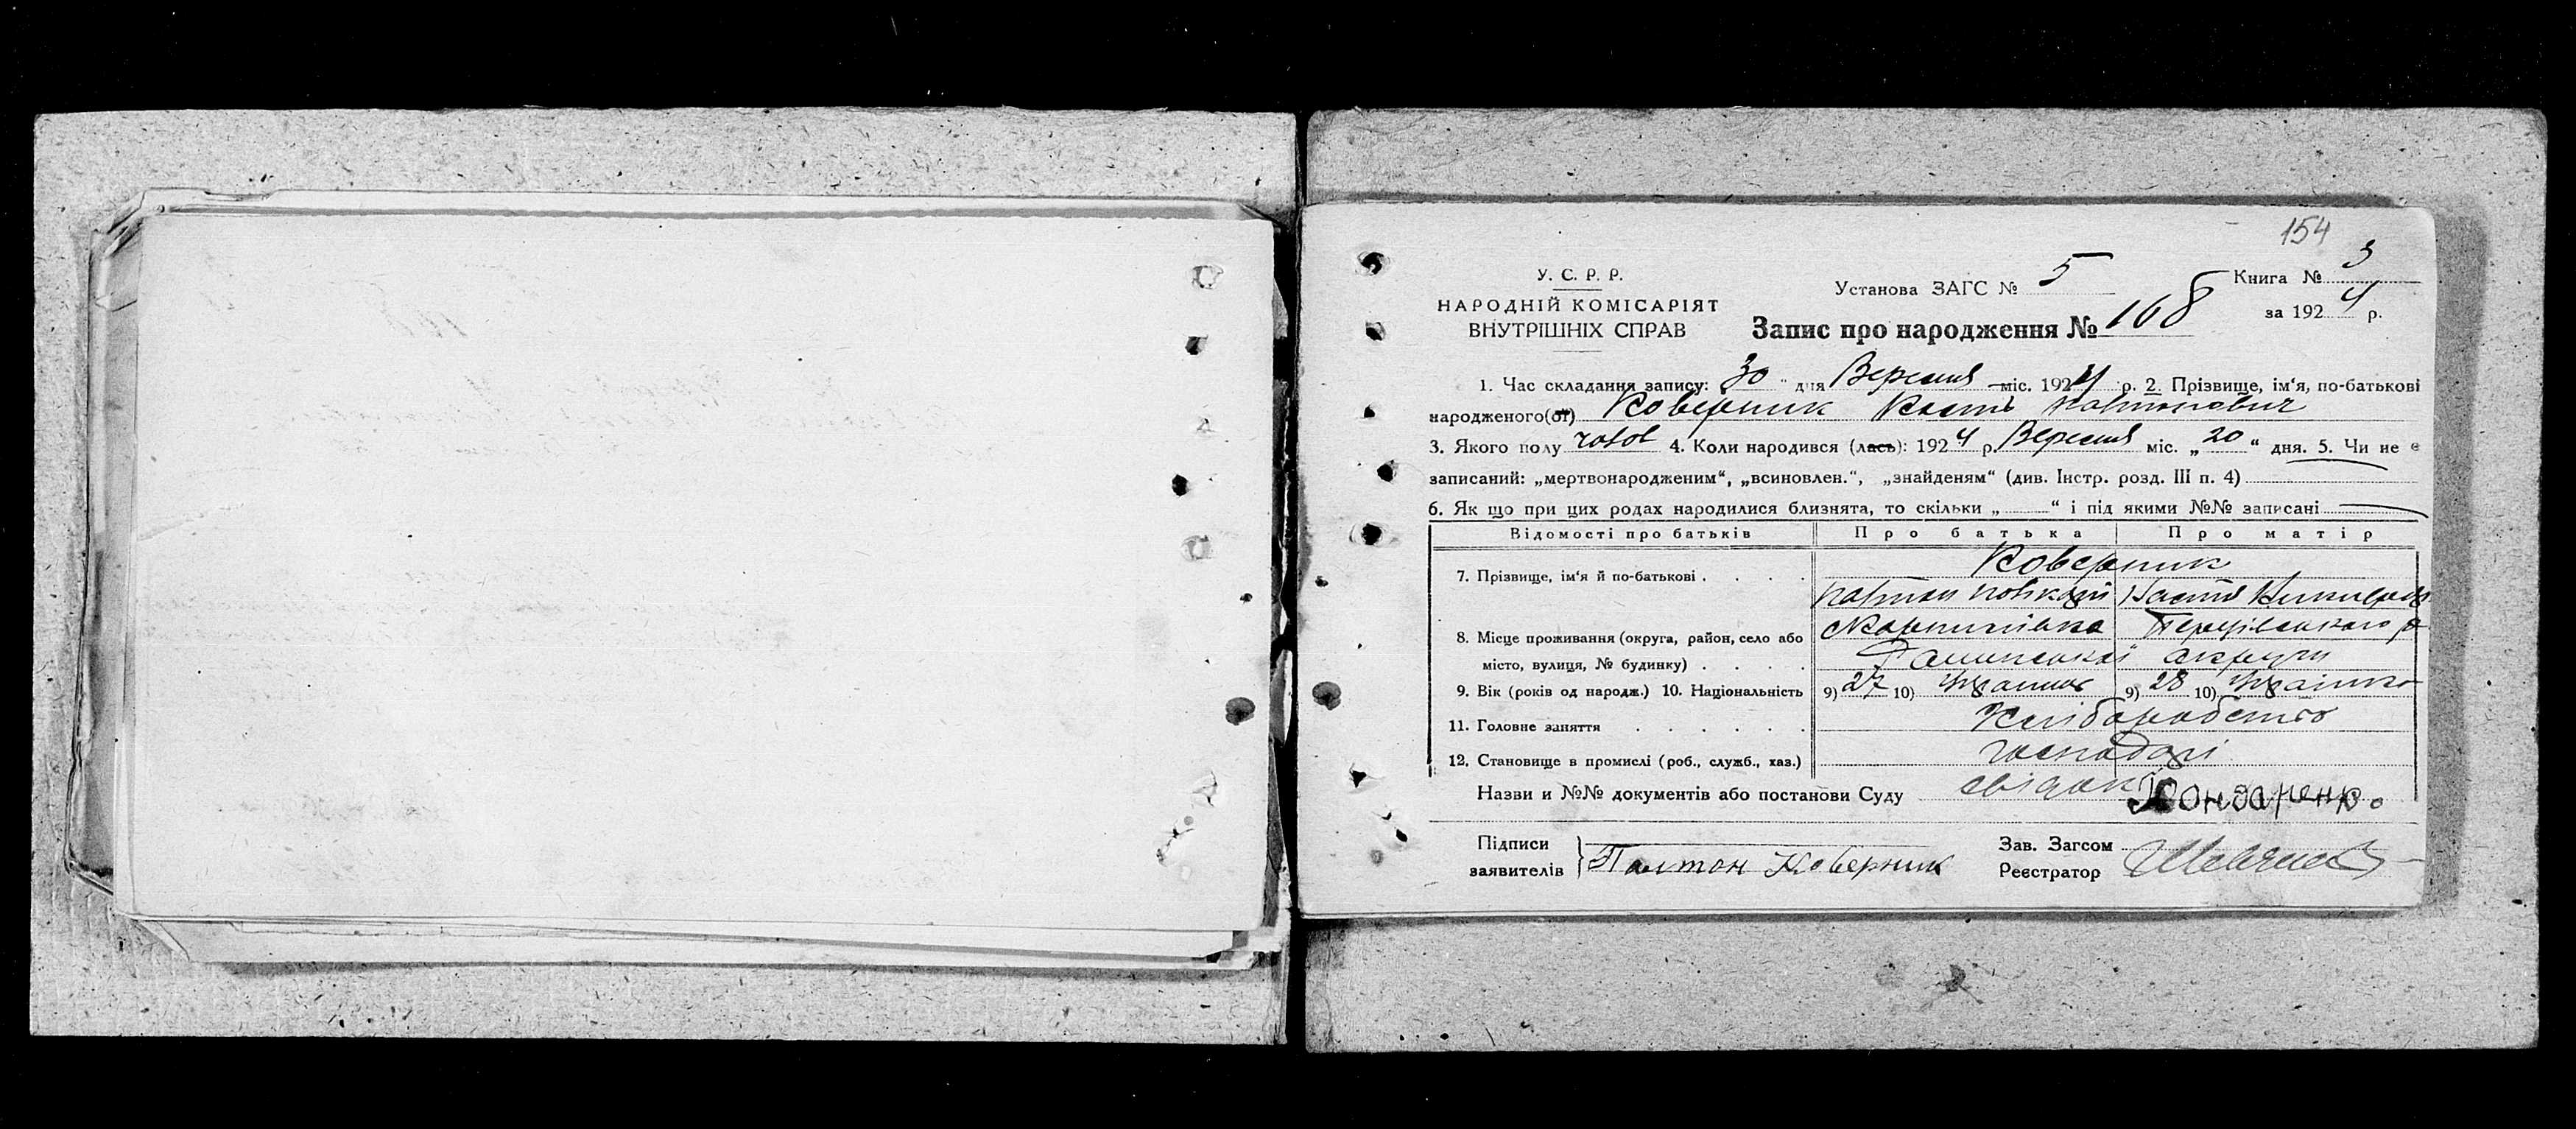 154
У. С. Р. Р.
НАРОДНІЙ КОМІСАРІЯТ
ВНУТРІШНІХ СПРАВ
Установа ЗАГС № 5
Книга № 3
за 1924 р.
Запис про народження № 168
1. Час складання запису: 30 " дня Вересня міс. 1924 р. 2. Прізвище, ім'я, по-батькові
народженого(ої) Коверник Кость
3. Якого полу чолов 4. Коли народився (лась): 1924 р. Вересня міс. „ 20 “ дня. 5. Чи не є
записаний: „мертвонародженим“, „всиновлен.“, „знайденям“ (див. Інстр. розд. III п. 4)
6. Як що при цих родах народилися близнята, то скільки „ “ і під якими №№ записані
Відомості про батьків Про батька Про матір
7. Прізвище, ім'я й по-батькові . . . . Коверник
8. Місце проживання (округа, район, село або
місто, вулиця, № будинку) . . . . Роменської округи
9. Вік (років од народж.) 10. Національність 9) 27 10) 9) 28 10)
11. Головне заняття . . . . . . Хліборобство
12. Становище в промислі (роб., служб., хаз.) господарі
Назви и №№ документів або постанови Суду свідок Бондаренко
Підписи
заявителів Коверник
Зав. Загсом
Реєстратор